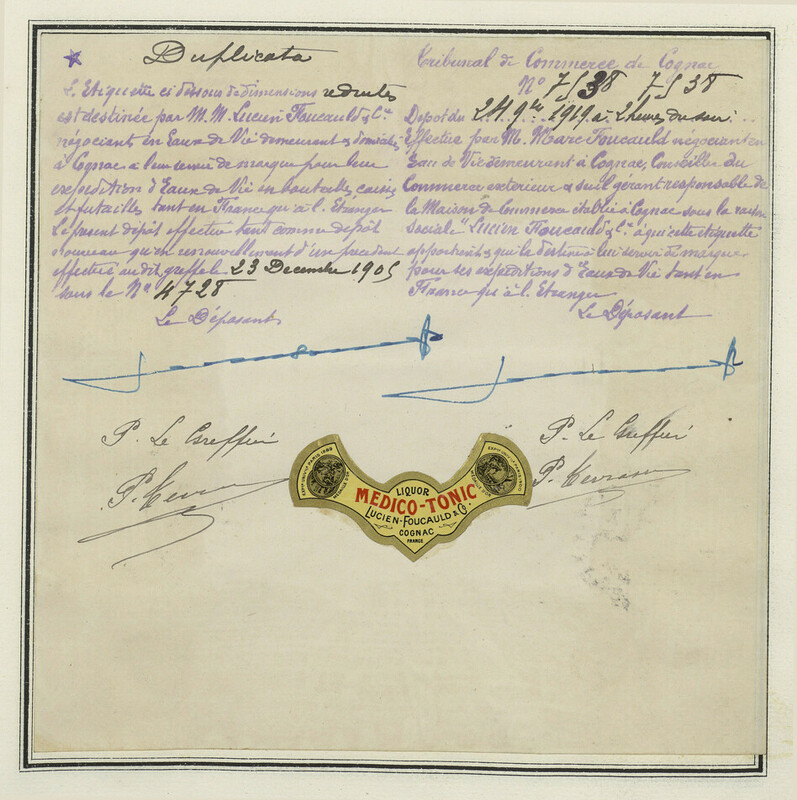 Duplicata
L'Etiquette ci dessous de dimensions réduites
est destinée par M.M. Lucien Foucauld & Cie
négociants en Eaux de Vie demeurant & domiciliés
à Cognac à leur servir de marque pour leur
expéditions d'Eaux de Vie en bouteilles, caisses
et futailles tant en France qu'à l'Etranger
Le présent dépôt effectué tant comme dépôt
nouveau qu'en renouvellement d'un précédent
effectué au dit greffe le 23 Decembre 1905
sous le No 4728
Le Déposant
Tribunal de Commerce de Cognac
No 7538 7538
Depot du 24 9bre 1919 à 2 heures du soir
Effectué par M. Marc Foucauld négociant en
Eau de Vie demeurant à Cognac, Conseiller du
Commerce extérieur & seul gérant responsable de
la Maison de Commerce établie à Cognac sous la raison
Sociale Lucien Foucauld & Cie à qui cette étiquette
appartient & qui la destine à lui servir de marque
pour ses expéditions d'Eaux de Vie tant en
France qu'à l'Etranger
Le Déposant
P. Le Greffier
P. Le Greffier
LIQUOR
MEDICO-TONIC
LUCIEN-FOUCAULD & Co.
COGNAC
FRANCE